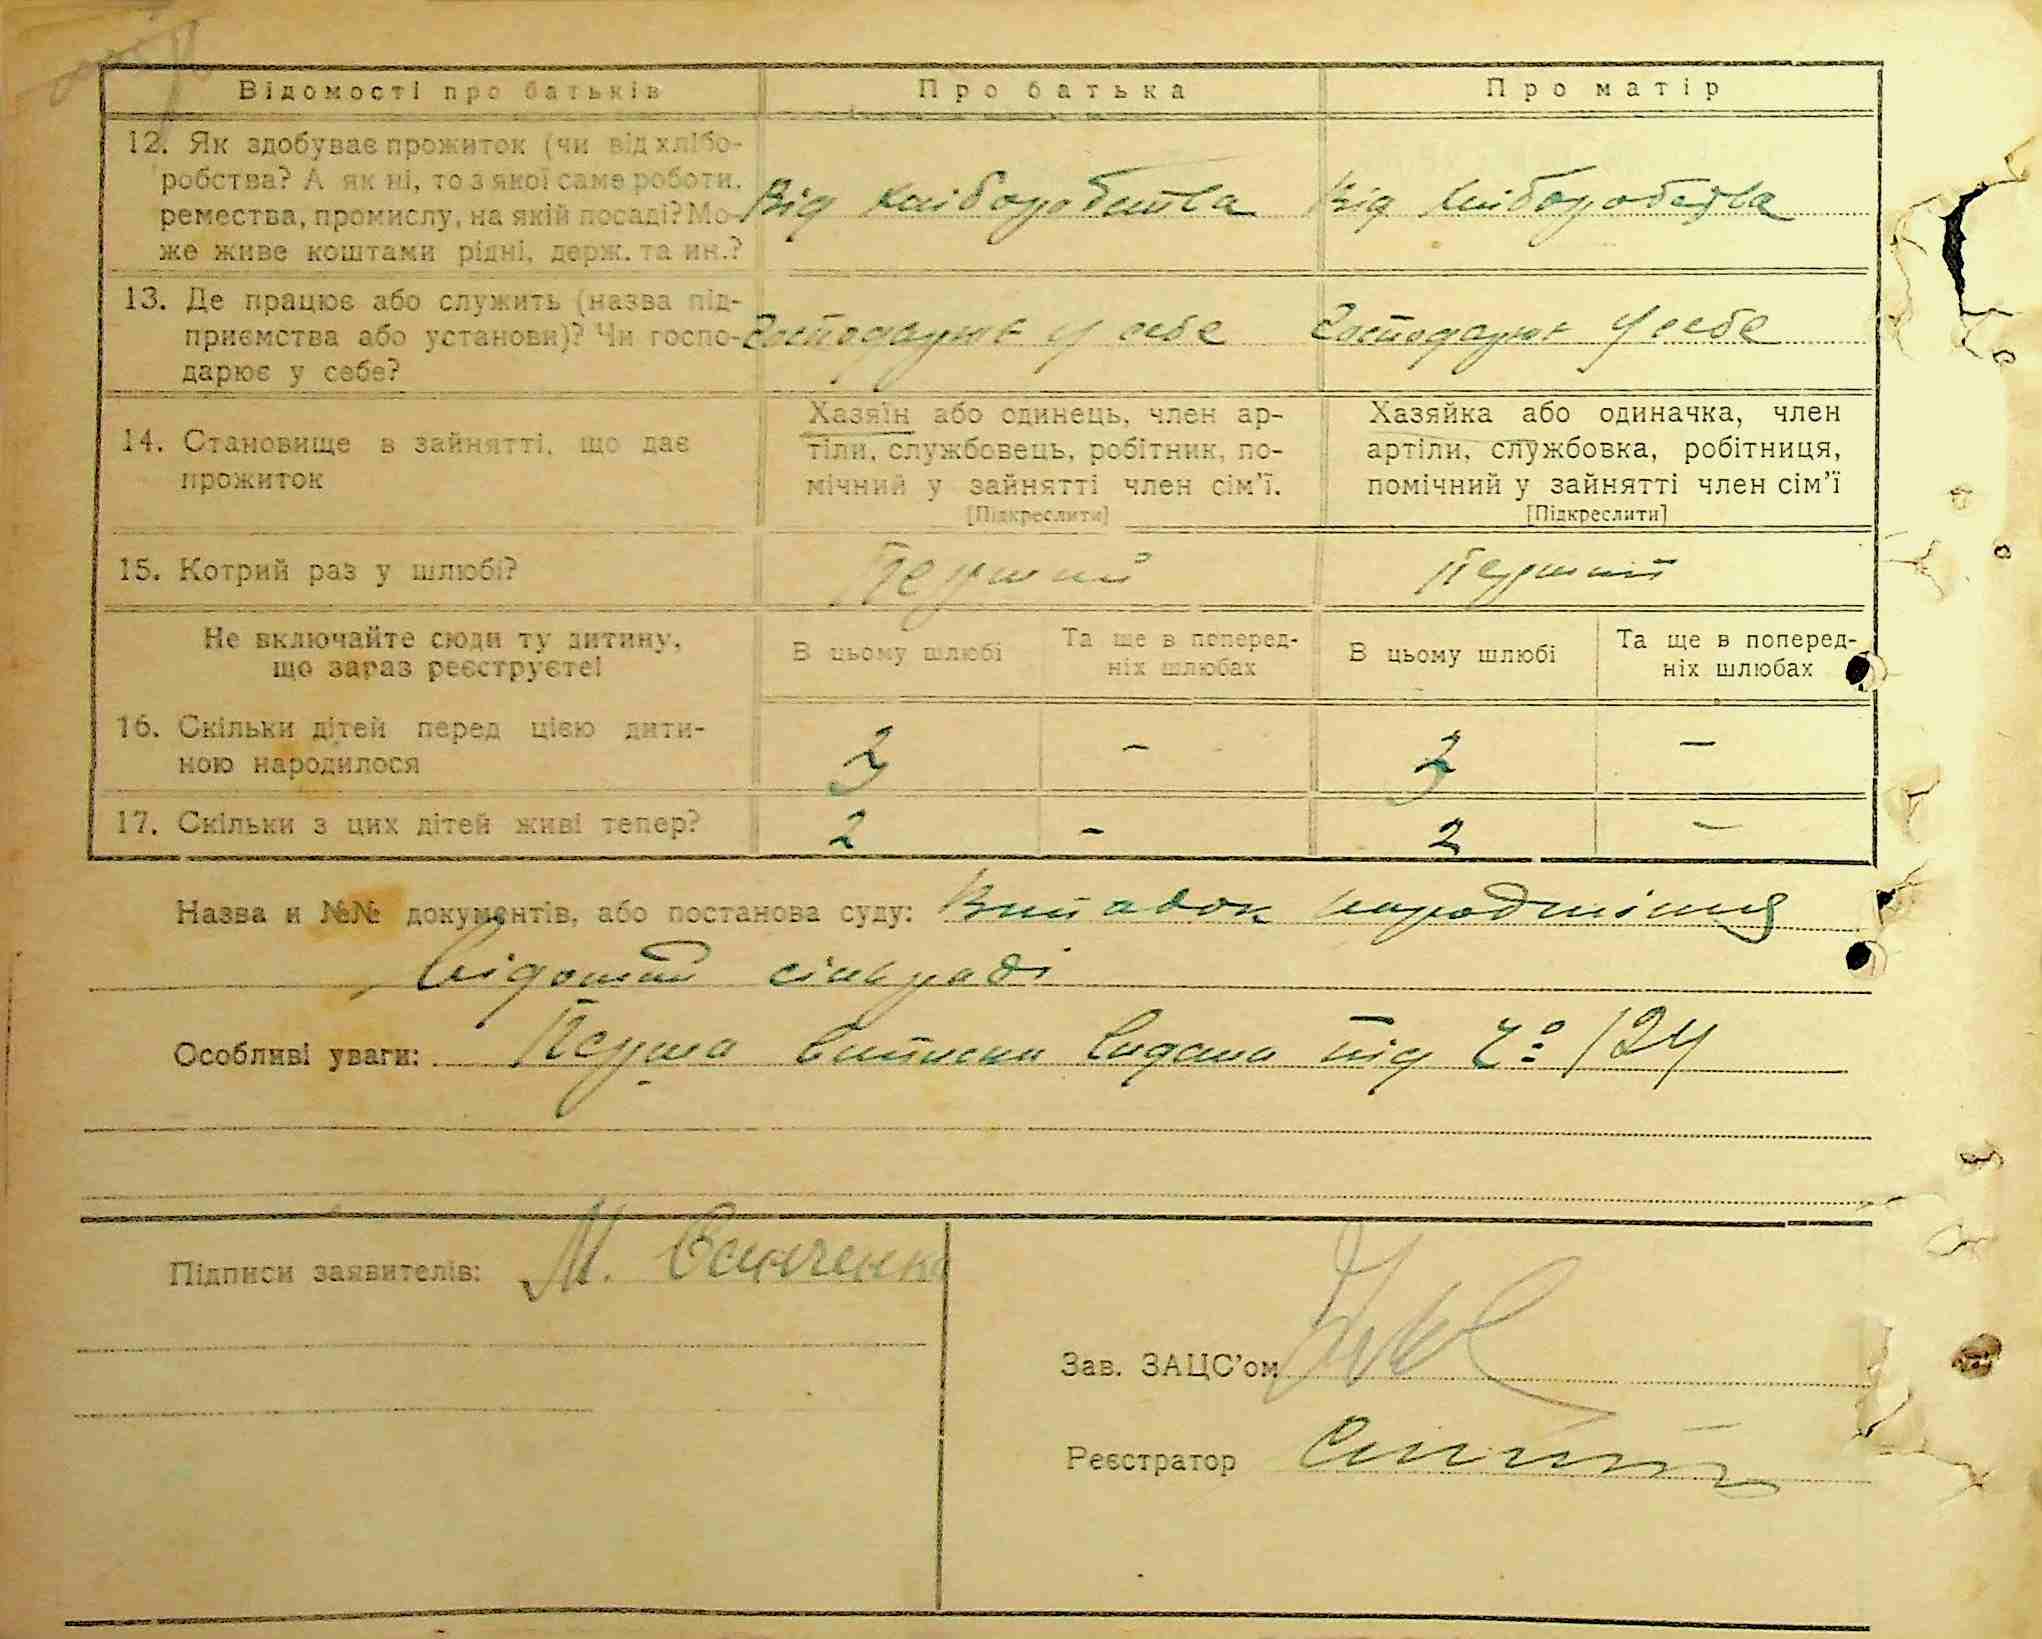 Відомості про батьків
Про батька
Про матір
12. Як здобуває прожиток (чи від хлібо-
робства? А як ні, то з якої саме роботи,
ремества, промислу, на якій посаді? Мо-
же живе коштами рідні, держ. та ин.?
Від хліборобства
Від хліборобства
13. Де працює або служить (назва під-
приємства або установи)? Чи госпо-
дарює у себе?
Господарює у себе
Господарює у себе
14. Становище в зайнятті, що дає
прожиток
Хазяїн або одинець, член ар-
тіли, службовець, робітник, по-
мічний у зайнятті член сім'ї.
[Підкреслити]
Хазяйка або одиначка, член
артіли, службовка, робітниця,
помічний у зайнятті член сім'ї
[Підкреслити]
15. Котрий раз у шлюбі?
Перший
Перший
Не включайте сюди ту дитину,
що зараз реєструєте!
В цьому шлюбі
Та ще в поперед-
ніх шлюбах
В цьому шлюбі
Та ще в поперед-
ніх шлюбах
16. Скільки дітей перед цією дити-
ною народилося
3
-
3
-
17. Скільки з цих дітей живі тепер?
2
-
2
-
Назва и №№ документів, або постанова суду: Випадок народження
відомий сільраді
Особливі уваги: Перша виписка видана під Ч° 124
Підписи заявителів: М.
Зав. ЗАЦС'ом
Реєстратор